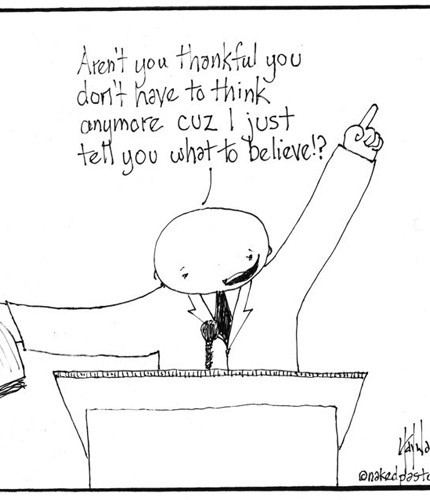 Aren't you thankful you
don't have to think
anymore cuz I just
tell you what to believe!?
@nakedpasto